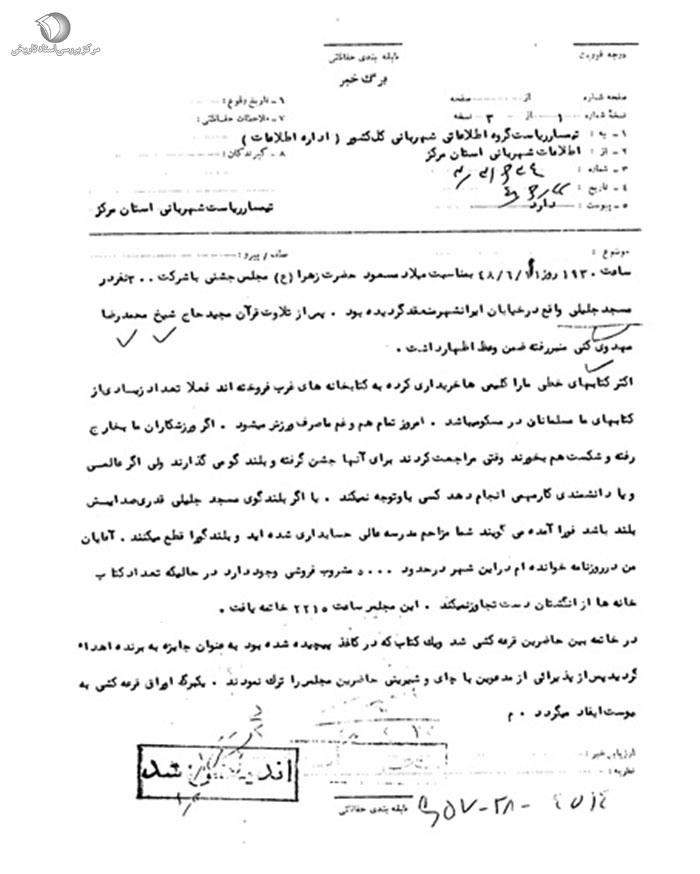 مرکز بررسی اسناد تاریخی
درجه فوریت طبقه بندی حفاظتی
برگ خبر
صفحه شماره از صفحه ۶ - تاریخ وقوع :
نسخهٔ شماره ۱ از ۳ نسخه ۷ - ملاحظات حفاظتی :
۱ - به : تیمسار ریاست گروه اطلاعاتی شهربانی کل کشور ( اداره اطلاعات ) ۸ - گیرندگان :
۲ - از : اطلاعات شهربانی استان مرکز
۳ - شماره :
۴ - تاریخ :
۵ - پیوست : دارد تیمسار ریاست شهربانی استان مرکز
موضوع : عطف / پیرو :
ساعت ۱۹۳۰ روز ۴۸/۶/۱۱ بمناسبت میلاد مسعود حضرت زهرا (ع) مجلس جشنی با شرکت ۳۰۰ نفر در
مسجد جلیلی واقع در خیابان ایرانشهر منعقد گردیده بود ۰ پس از تلاوت قرآن مجید حاج شیخ محمد رضا
مهدوی کنی منبر رفته ضمن وعظ اظهار داشت ۰
اکثر کتابهای خطی ما را کلیمی ها خریداری کرده به کتابخانه های غرب فروخته اند فعلا تعداد زیادی از
کتابهای ما مسلمانان در مسکو میباشد ۰ امروز تمام هم و غم ما صرف ورزش میشود ۰ اگر ورزشکاران ما بخارج
رفته و شکست هم بخورند وقتی مراجعت کردند برای آنها جشن گرفته و بلند گو می گذارند ولی اگر عالمی
و یا دانشمندی کار مهمی انجام دهد کسی باو توجه نمیکند ۰ یا اگر بلندگوی مسجد جلیلی قدری صدایش
بلند باشد فورا آمده می گویند شما مزاحم مدرسه عالی حسابداری شده اید و بلندگو را قطع میکنند ۰ آقایان
من در روزنامه خوانده ام در این شهر در حدود ۵۰۰۰ مشروب فروشی وجود دارد در حالیکه تعداد کتاب
خانه ها از انگشتان دست تجاوز نمیکند ۰ این مجلس ساعت ۲۲۱۵ خاتمه یافت ۰
در خاتمه بین حاضرین قرعه کشی شد و یک کتاب که در کاغذ پیچیده شده بود به عنوان جایزه به برنده اهداء
گردید پس از پذیرائی از مدعوین با چای و شیرینی حاضرین مجلس را ترک نمودند ۰ یکبرگ اوراق قرعه کشی به
پیوست ایفاد میگردد ۰ م
ارزیابی خبر :
نظریه :
شد
طبقه بندی حفاظتی